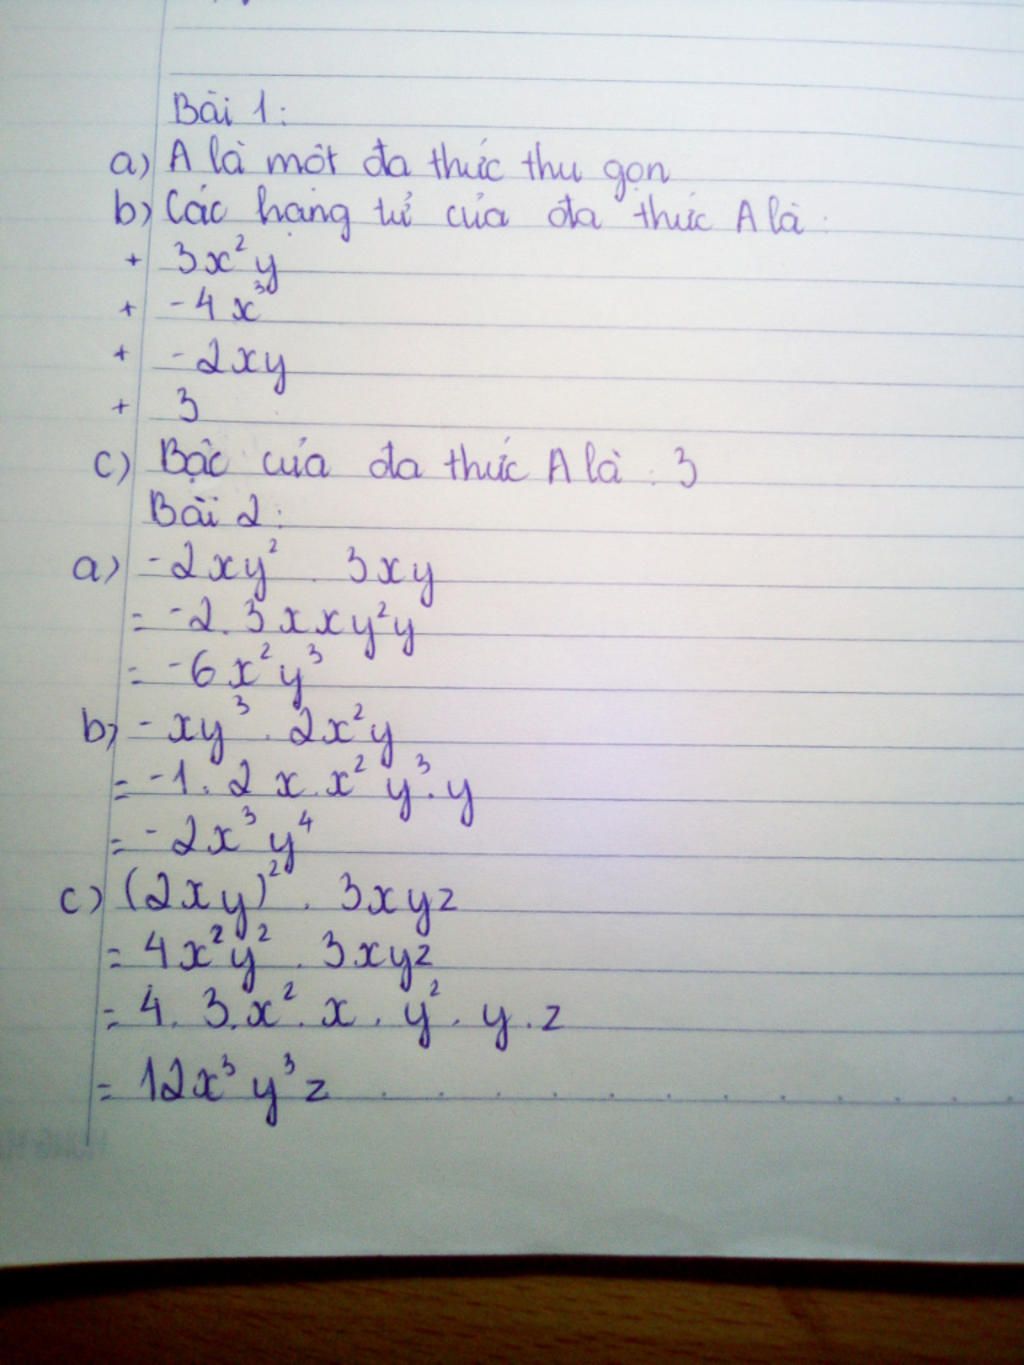 Bài 1:
a) A là một đa thức thu gọn
b) Các hạng tử của đa thức A là:
+ 3x²y
+ -4x³
+ -2xy
+ 3
c) Bậc của đa thức A là: 3
Bài 2:
a) -2xy² . 3xy
= -2.3xxy²y
= -6x²y³
b) -xy³ . 2x²y
= -1.2x.x²y³.y
= -2x³y⁴
c) (2xy)² . 3xyz
= 4x²y² . 3xyz
= 4.3.x².x.y².y.z
= 12x³y³z